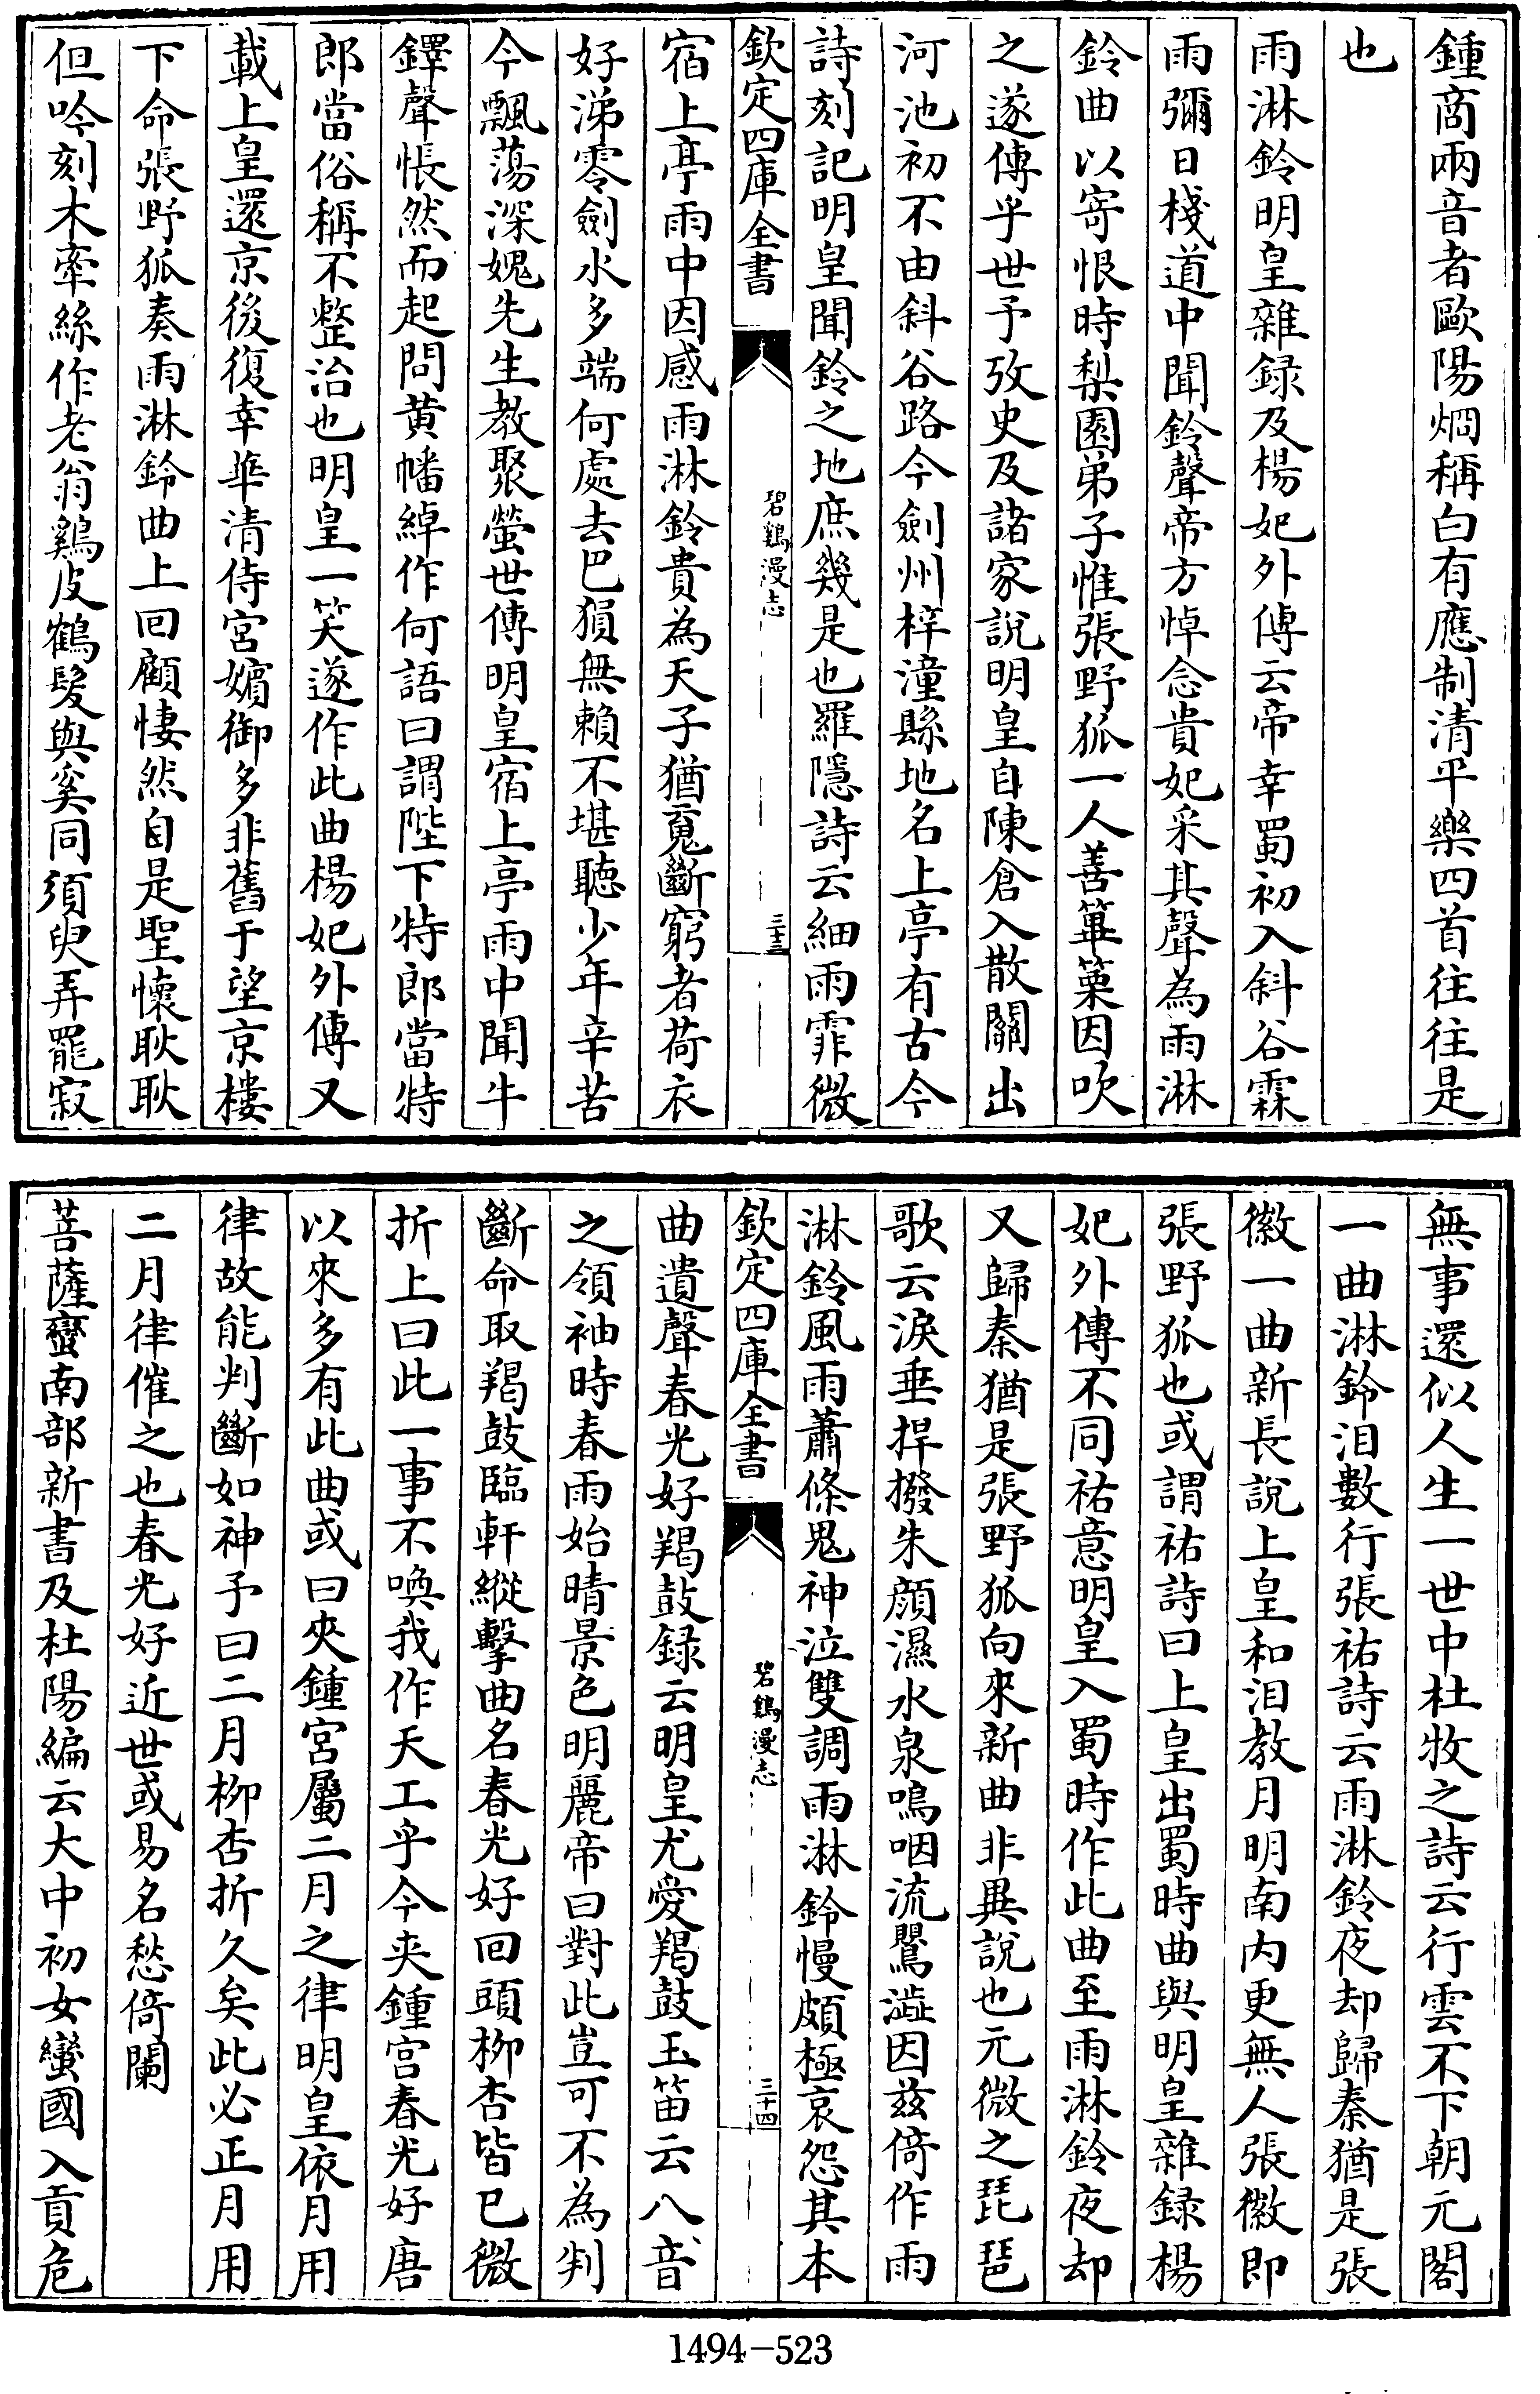 鍾商兩音者歐陽烱稱白有應制清平樂四首往往是
也
雨淋鈴明皇雜録及楊妃外傳云帝幸蜀初入斜谷霖
雨彌日棧道中聞鈴聲帝方悼念貴妃采其聲為雨淋
鈴曲以寄恨時梨園弟子惟張野狐一人善篳篥因吹
之遂傳乎世予攷史及諸家說明皇自陳倉入散關出
河池初不由斜谷路今劍州梓潼縣地名上亭有古今
詩刻記明皇聞鈴之地庶幾是也羅隱詩云細雨霏微
欽定四庫全書
碧鷄漫志
三十三
宿上亭雨中因感雨淋鈴貴為天子猶䰟斷窮者荷衣
好涕零劍水多端何處去巴猿無賴不堪聽少年辛苦
今飄蕩深媿先生教聚螢世傳明皇宿上亭雨中聞牛
鐸聲悵然而起問黄幡綽作何語曰謂陛下特郎當特
郎當俗稱不整治也明皇一笑遂作此曲楊妃外傳又
載上皇還京後復幸華清侍宮嬪御多非舊于望京樓
下命張野狐奏雨淋鈴曲上回顧悽然自是聖懷耿耿
但吟刻木牽絲作老翁鷄皮鶴髮與奚同須臾弄罷寂
無事還似人生一世中杜牧之詩云行雲不下朝元閣
一曲淋鈴泪數行張祐詩云雨淋鈴夜却歸秦猶是張
徽一曲新長說上皇和泪教月明南内更無人張徽即
張野狐也或謂祐詩曰上皇出蜀時曲與明皇雜録楊
妃外傳不同祐意明皇入蜀時作此曲至雨淋鈴夜却
又歸秦猶是張野狐向來新曲非異說也元微之琵琶
歌云淚垂捍撥朱顔濕水泉嗚咽流鶯澁因兹倚作雨
淋鈴風雨蕭條鬼神泣雙調雨淋鈴慢頗極哀怨其本
欽定四庫全書
碧鷄漫志
三十四
曲遺聲春光好羯鼓録云明皇尤愛羯鼓玉笛云八音
之領袖時春雨始晴景色明麗帝曰對此豈可不為判
斷命取羯鼓臨軒縱擊曲名春光好回頭柳杏皆已微
折上曰此一事不喚我作天工乎今夹鍾宫春光好唐
以來多有此曲或曰夾鍾宮屬二月之律明皇依月用
律故能判斷如神予曰二月柳杏折久矣此必正月用
二月律催之也春光好近世或易名愁倚闌
菩薩蠻南部新書及杜陽編云大中初女蠻國入貢危
1494-523